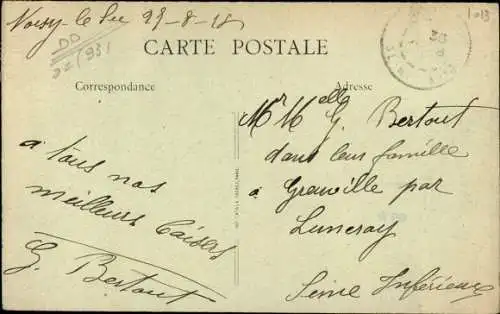 Noisy le Sec 29-8-18
CARTE POSTALE
Correspondance
Adresse
a tous nos
meilleurs baisers
G. Bertout
Mr Melle G. Bertout
dans leur famille
a Granville par
Luneray
Seine Inférieure